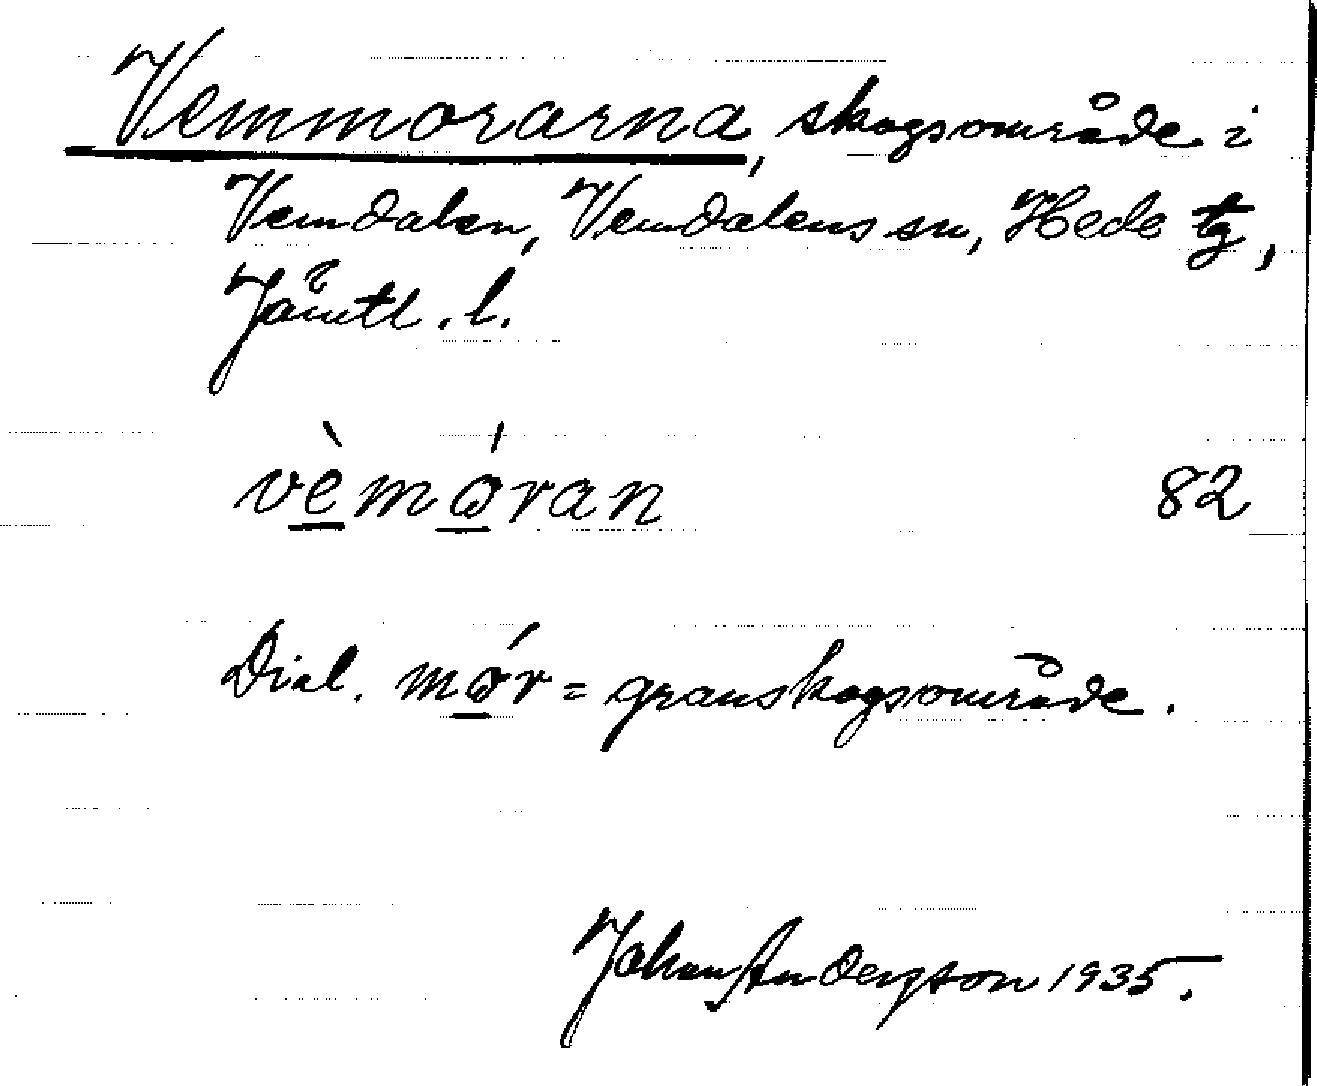 Vemmorarna, skogsområde i
Vemdalen, Vemdalens sn, Hede tg,
Jämtl. l.
vèmóran 82
Dial. mór = granskogsområde.
Johan Anderzson 1935.